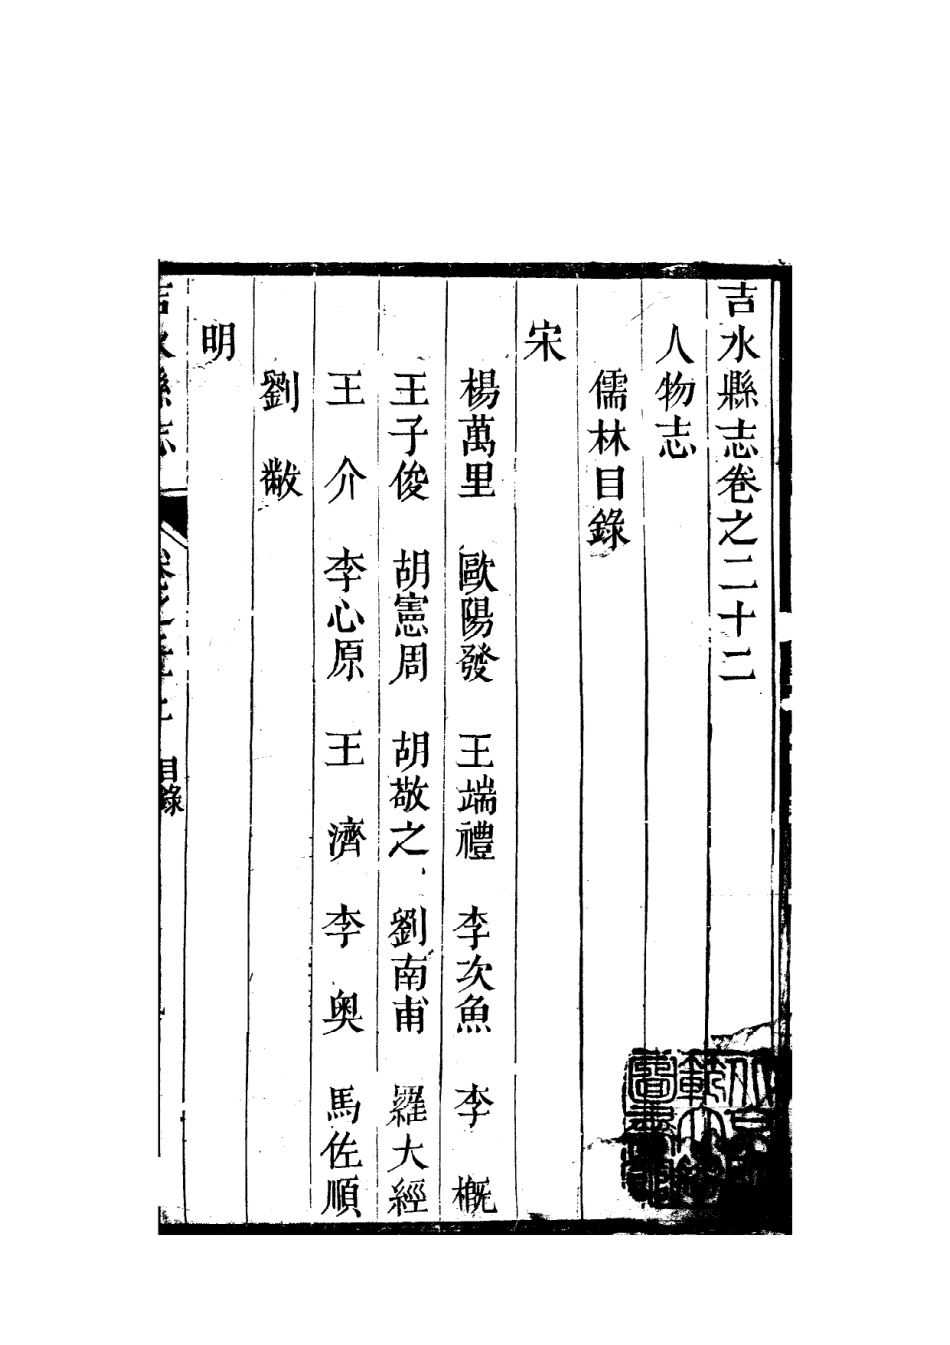 吉水縣志卷之二十二
人物志
儒林目錄
宋
楊萬里　歐陽發　王端禮　李次魚　李　概
王子俊　胡憲周　胡敬之　劉南甫　羅大經
王　介　李心原　王　濟　李　奥　馬佐順
劉　敝
明
吉水縣志　卷之　目錄